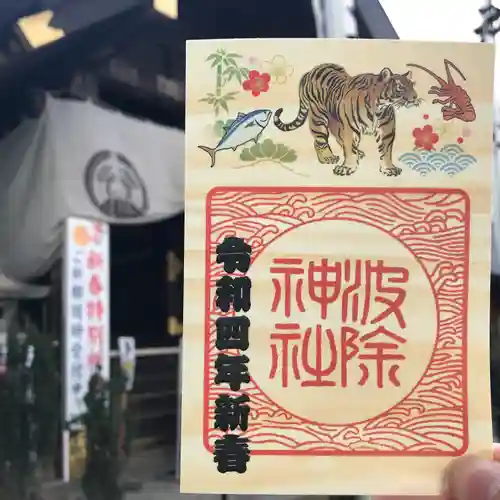 波除
神社
令和四年新春